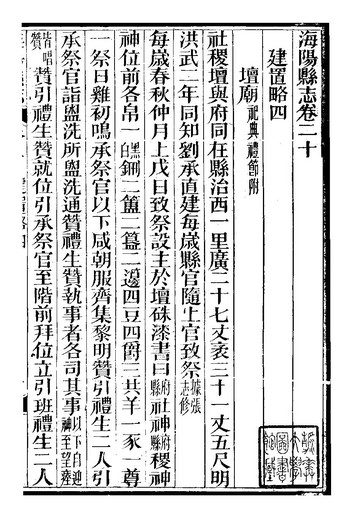 海陽縣志卷二十
建置略四
壇廟祀典禮節附
社稷壇與府同在縣治西一里廣二十七丈袤三十一丈五尺明
洪武二年同知劉承直建每歲縣官隨上官致祭據張志修
每歲春秋仲月上戊日致祭設主於壇硃漆書曰府縣社神府縣稷神
神位前各帛一黑白鉶二簠二簋二籩四豆四爵三共羊一豕一尊
一祭日雞初鳴承祭官以下咸朝服齊集黎明贊引禮生二人引
承祭官詣盥洗所盥洗通贊禮生贊執事者各司其事以下自迎神至望瘞
皆唱贊贊引禮生贊就位引承祭官至階前拜位立引班禮生二人